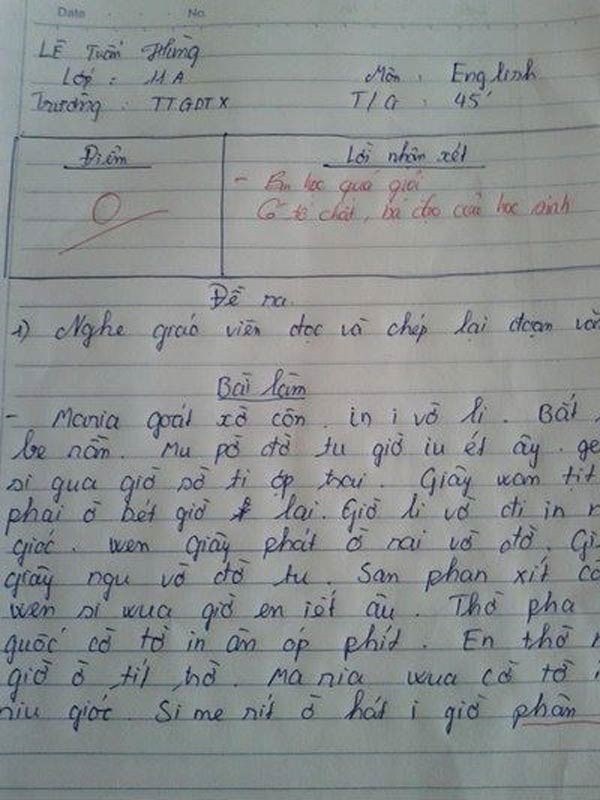 Date No.
LÊ Tuấn Hùng
Lớp : 11A Môn : Englinh
Trường : TTGDTX T/G : 45'
Điểm Lời nhận xét
- Em học quá giỏi
Có tố chất, bá đạo của học sinh
Đề ra.
1) Nghe giáo viên đọc và chép lại đoạn văn
Bài làm
- Mania goát xờ côn. in i vờ li. Bất
be nần. Mu pờ đờ tu giờ iu ét ây. ge
si qua giờ sờ ti óp trai. Giây wan tịt
phai ờ bét giờ lai. Giờ li vờ đi in n
gióc. wen giây phát ờ nai vờ đờ. Gi
giây ngu vờ đờ tu. San phan xít cờ
wen si wua giờ en iết âu. Thờ pha
quốc cờ tờ in ân óp phít. En thờ n
giờ ờ tít hờ. Mania wua cờ tờ i
niu gióc. Si me nít ờ hát i giờ phần